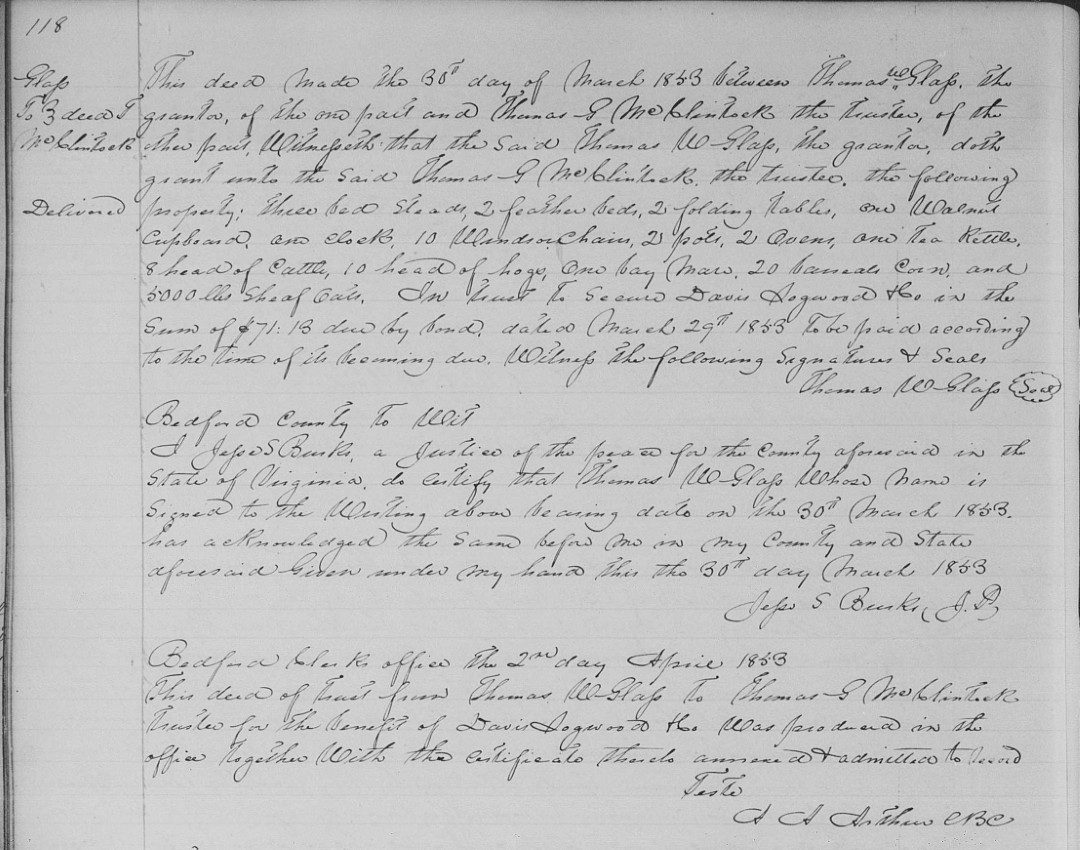 118
Glass
To } deed T
McClintock
Delivered
This deed made the 30th day of March 1853 between Thomas W Glass, the
grantor, of the one part and Thomas G McClintock the trustee, of the
other part, Witnesseth that the Said Thomas W Glass, the grantor, doth
grant unto the Said Thomas G McClintock, the trustee, the following
property; three bed Steads, 2 feather beds, 2 folding tables, one Walnut
Cupboard, one clock, 10 Windsor Chairs, 2 pots, 2 Ovens, one Tea Kettle,
8 head of Cattle, 10 head of hogs, One bay Mare, 20 barrels Corn, and
5000 lbs Sheaf Oats. In trust to Secure Davis & Co in the
Sum of $71:13 due by bond, dated March 29th 1853 to be paid according
to the time of its becoming due. Witness the following Signatures & Seals
Thomas W Glass Seal
Bedford County to Wit
I Jesse S Burks, a Justice of the peace for the County aforesaid in the
State of Virginia, do Certify that Thomas W Glass Whose Name is
Signed to the Writing above bearing date on the 30th March 1853.
has acknowledged the Same before me in my County and State
aforesaid Given under my hand this the 30th day March 1853
Jesse S Burks, J.P,
Bedford Clerks office the 2nd day April 1853
This deed of trust from Thomas W Glass to Thomas G McClintock
trustee for the benefit of Davis & Co Was produced in the
office together With the Certificate thereto annexed & admitted to Record
Teste
A A Arthur CBC